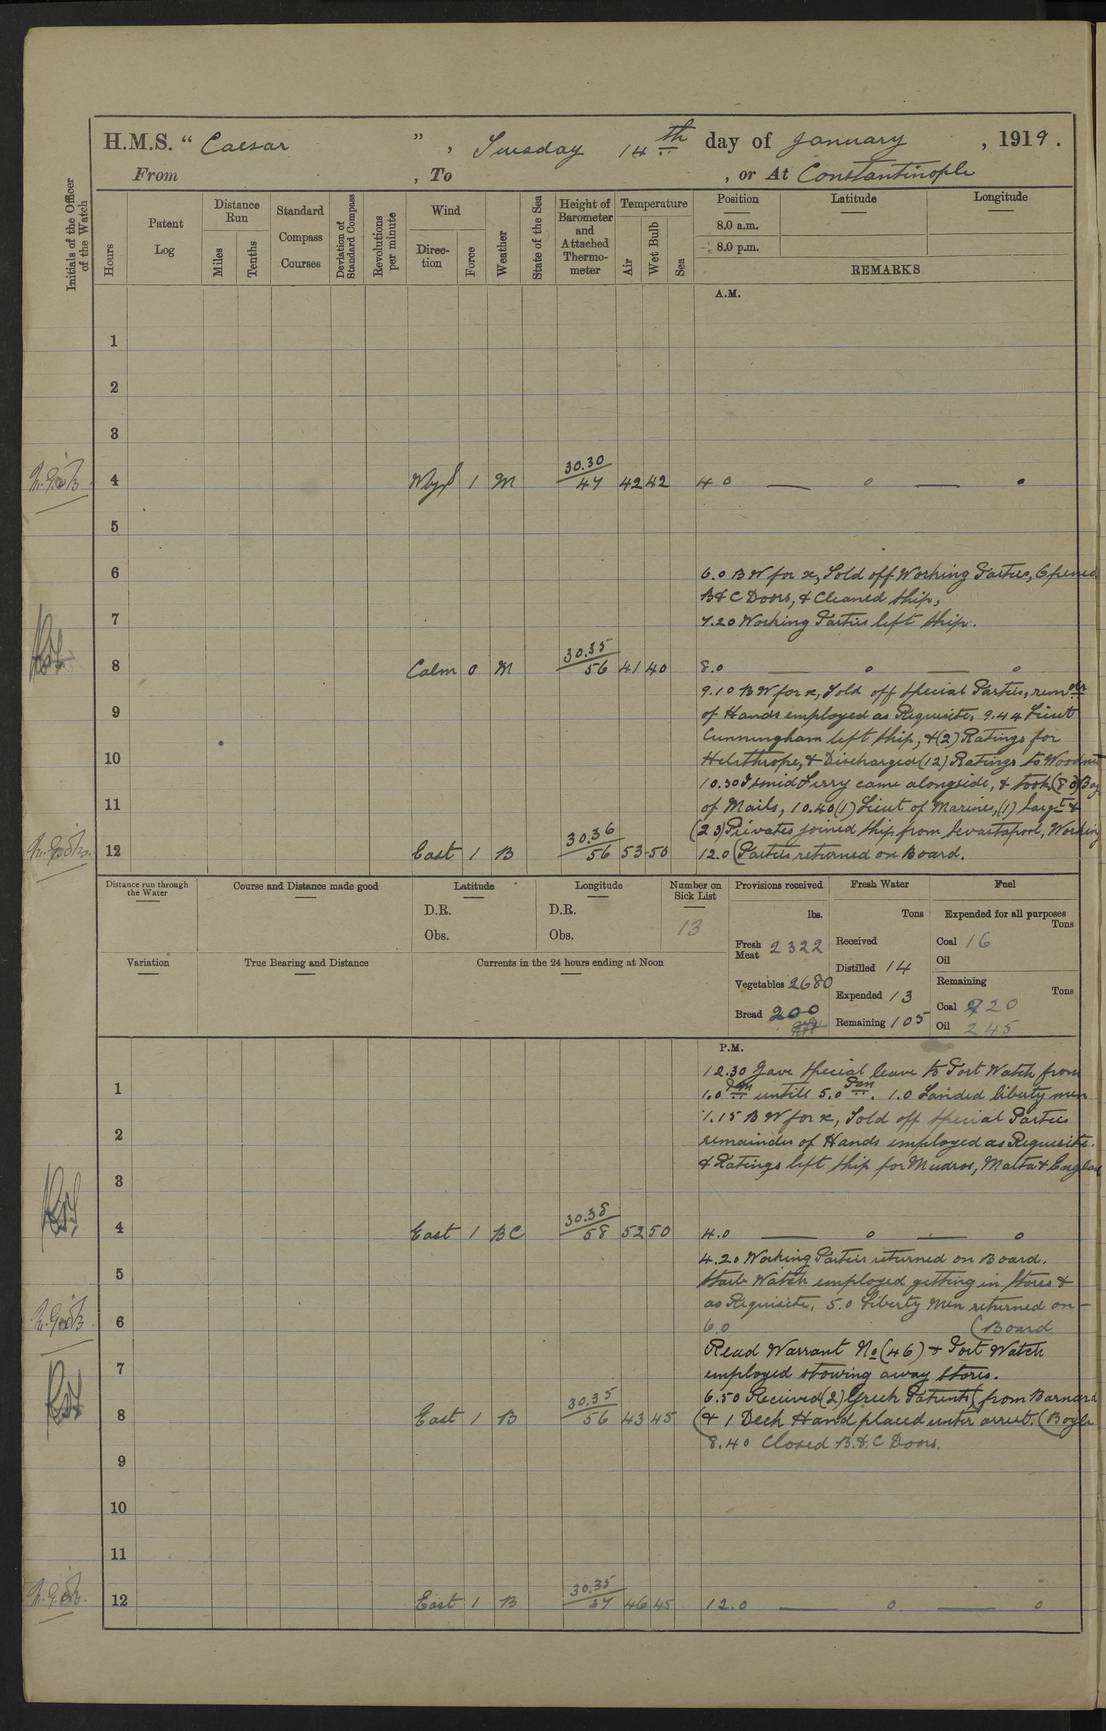 H.M.S. “ Caesar ” , Tuesday 14th day of January , 1919 .
From , To , or At Constantinople
Initials of the Officer of the Watch
Hours
Patent Log
Distance Run
Miles
Tenths
Standard Compass Courses
Deviation of Standard Compass
Revolutions per minute
Wind
Direction
Force
Weather
State of the Sea
Height of Barometer and Attached Thermometer
Temperature
Air
Wet Bulb
Sea
Position Latitude Longitude
8.0 a.m.
8.0 p.m.
REMARKS
A.M.
1
2
3
4 1 M 30.30 47 42 42 4.0 — 0 — 0
5
6 6.0 B W for x, Told off Working Parties, Opened
B & C Doors, & Cleaned Ship,
7 7.20 Working Parties left Ship.
8 Calm 0 M 30.35 56 41 40 8.0 — 0 — 0
9.10 B W for x, Told off Special Parties, remdr
9 of Hands employed as Requisite. 9.44 Lieut
Cunningham left Ship, & (2) Ratings for
10 Helsthrope, & Discharged (12) Ratings to Woodnut
10.30 Ismid Ferry came alongside, & took (80) Bag
11 of Mails, 10.40 (1) Lieut of Marines, (1) Sargt &
(23) Privates joined Ship from Sevastapool, Working
12 East 1 B 30.36 56 53 50 12.0 (Parties returned on Board.
Distance run through the Water
Course and Distance made good
Latitude
D.R.
Obs.
Longitude
D.R.
Obs.
Number on Sick List
13
Variation
True Bearing and Distance
Currents in the 24 hours ending at Noon
Provisions received
lbs.
Fresh Meat 2322
Vegetables 2680
Bread 200
Fresh Water
Tons
Received
Distilled 14
Expended 13
Remaining 105
Fuel
Expended for all purposes
Tons
Coal 16
Oil
Remaining
Tons
Coal 720
Oil 245
P.M.
12.30 Gave Special leave to Port Watch from
1 1.0 pm untill 5.0 pm. 1.0 Landed liberty men
1.15 B W for x, Told off Special Parties
2 remainder of Hands employed as Requisite.
& Ratings left Ship for Mudros, Malta & England
3
4 East 1 BC 30.38 58 52 50 4.0 — 0 — 0
4.20 Working Parties returned on Board.
5 Starb Watch employed getting in Stores &
as Requisite, 5.0 Liberty Men returned on -
6 6.0 (Board
Read Warrant No (46) & Port Watch
7 employed stowing away Stores.
6.50 Received (2) Greek Patients (from Barnard
8 East 1 B 30.35 56 43 45 (& 1 Deck Hand placed under arrest. (Boyle
8.40 Closed B. & C Doors.
9
10
11
12 East 1 B 30.35 57 46 45 12.0 — 0 — 0